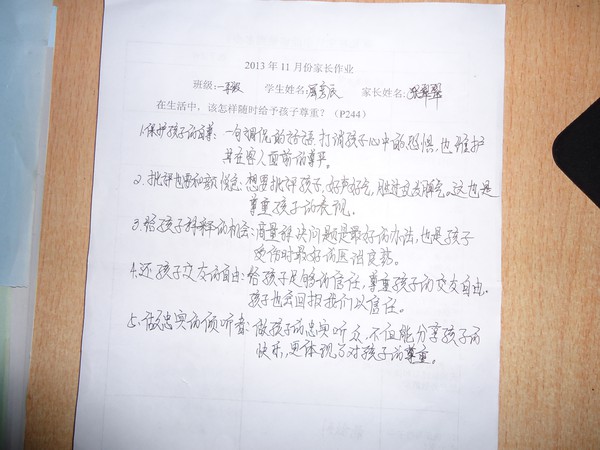 2013 年 11 月份家长作业
班级:一年级 学生姓名: 家长姓名:
在生活中，该怎样随时给予孩子尊重？（P244）
1.保护孩子的自尊：一句调侃的话语,打消孩子心中的恐惧,也维护
其在客人面前的尊严。
2.批评也要和颜悦色:想要批评孩子,好声好气,胜过发脾气。这也是
尊重孩子的表现.
3.给孩子解释的机会:商量解决问题是最好的办法,也是孩子
受伤时最好的医治良药。
4.还孩子交友的自由:给孩子足够的信任,尊重孩子的交友自由.
孩子也会回报我们以信任。
5.做忠实的倾听者:做孩子的忠实听众,不但能分享孩子的
快乐,更体现了对孩子的尊重。